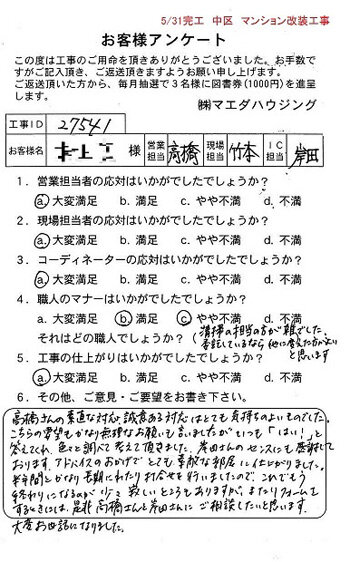 5/31完工 中区 マンション改装工事
お客様アンケート
この度は工事のご用命を頂きありがとうございました。お手数で
すがご記入頂き、ご返送頂きますようお願い申し上げます。
ご返送いただいた方から、毎月抽選で3名様に図書券(1000円)を進呈
します。
㈱マエダハウジング
工事ID 27541
お客様名 様 営業担当 高橋 現場担当 竹本 IC担当 岸田
1．営業担当者の応対はいかがでしたでしょうか？
a.大変満足 b.満足 c.やや不満 d.不満
2．現場担当者の応対はいかがでしたでしょうか？
a.大変満足 b.満足 c.やや不満 d.不満
3．コーディネーターの応対はいかがでしたでしょうか？
a.大変満足 b.満足 c.やや不満 d.不満
4．職人のマナーはいかがでしたでしょうか？
a.大変満足 b.満足 c.やや不満 d.不満
それはどの職人でしょうか？ (清掃の担当の方が雑でした。
委託しているなら他に変えた方がよい
と思います
5．工事の仕上がりはいかがでしたでしょうか？
a.大変満足 b.満足 c.やや不満 d.不満
6．その他、ご意見・ご要望をお書き下さい。
高橋さんの素直な対応、誠意ある対応はとても気持ちのよいものでした。
こちらの要望もかなり無理なお願いも言いましたがいつも「はい！」と
答えてくれ、色々と調べて考えて頂きました。岸田さんのセンスにも感謝して
おります。アドバイスのおかげでとても素敵な部屋に仕上がりました。
半年間とかなり長期にわたり打合せを行いましたので、これでもう
終わりになるが少々寂しいところもありますが、またリフォームを
するときには、是非高橋さんと岸田さんにご相談したいと思います。
大変お世話になりました。